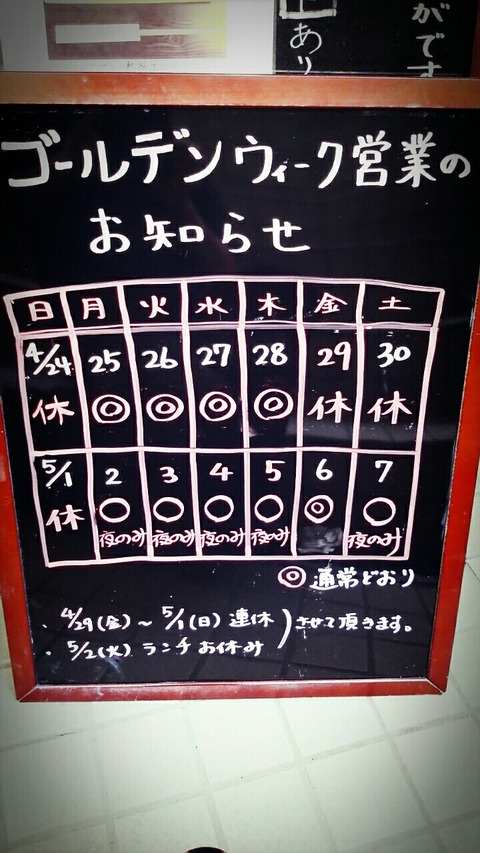 あり
がです
ゴールデンウィーク営業の
お知らせ
日 月 火 水 木 金 土
4/24 25 26 27 28 29 30
休 ◎ ◎ ◎ ◎ 休 休
5/1 2 3 4 5 6 7
休 ○ ○ ○ ○ ◎ ○
夜のみ 夜のみ 夜のみ 夜のみ 夜のみ
◎通常どおり
・4/29(金)～5/1(日)連休
・5/2(火)ランチお休み
)させて頂きます。